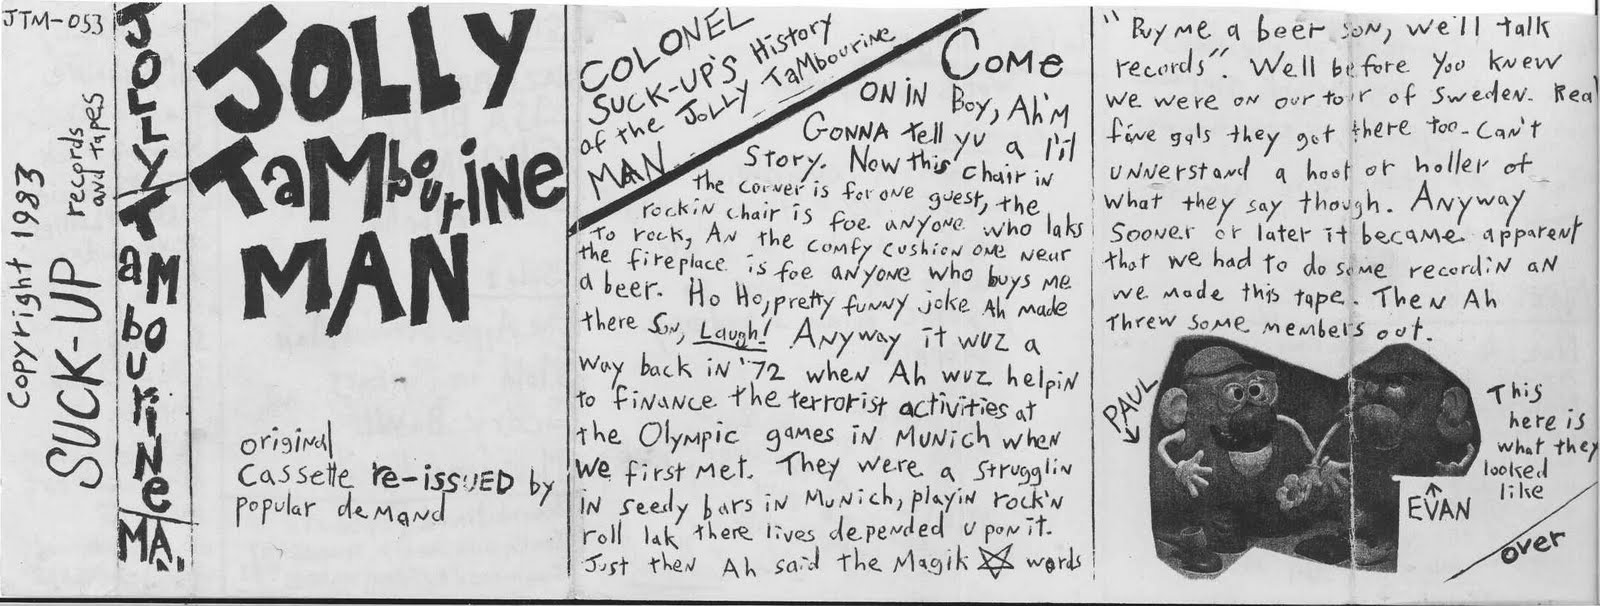 JTM-053
Copyright 1983
SUCK-UP
records
and tapes
JOLLY TaMbouriNe MAN
JOLLY
TaMbourINe
MAN
original
Cassette re-issued by
popular demand
COLONEL
SUCK-UP'S History
of the Jolly Tambourine
MAN
Come
ON IN Boy, Ah'm
GONNA tell yu a li'l
Story. Now this chair in
the corner is for one guest, the
rockin chair is foe anyone who laks
to rock, AN the comfy cushion one near
the fireplace is foe anyone who buys me
a beer. Ho Ho, pretty funny joke Ah made
there Son, Laugh! Anyway it wuz a
way back in '72 when Ah wuz helpin
to finance the terrorist activities at
the Olympic games in Munich when
we first met. They were a strugglin
in seedy bars in Munich, playin rock'n
roll lak there lives depended upon it.
Just then Ah said the Magik words
"Buy me a beer son, we'll talk
records". Well before you knew
we were on our tour of Sweden. Real
fine gals they got there too. Can't
unnerstand a hoot or holler of
what they say though. Anyway
Sooner or later it became apparent
that we had to do some recordin an
we made this tape. Then Ah
threw some members out.
PAUL
EVAN
This
here is
what they
looked
like
over